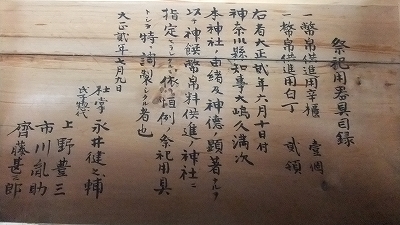 祭祀用器具目録
一幣帛供進用辛櫃 壹個
一幣帛供進用白丁 貳領
右者大正貳年六月十日付
神奈川縣知事大嶋久満次
本神社ノ由緒及神徳顕著ナルヲ
以テ神饌幣帛料供進ノ神社ニ
指定セラレタルニ依リ恒例ノ祭祀用具
トシテ特ニ調製シタル者也
大正貳年七月九日
社掌 永井健之輔
氏子惣代
上野豊三
市川亂助
齊藤甚三郎